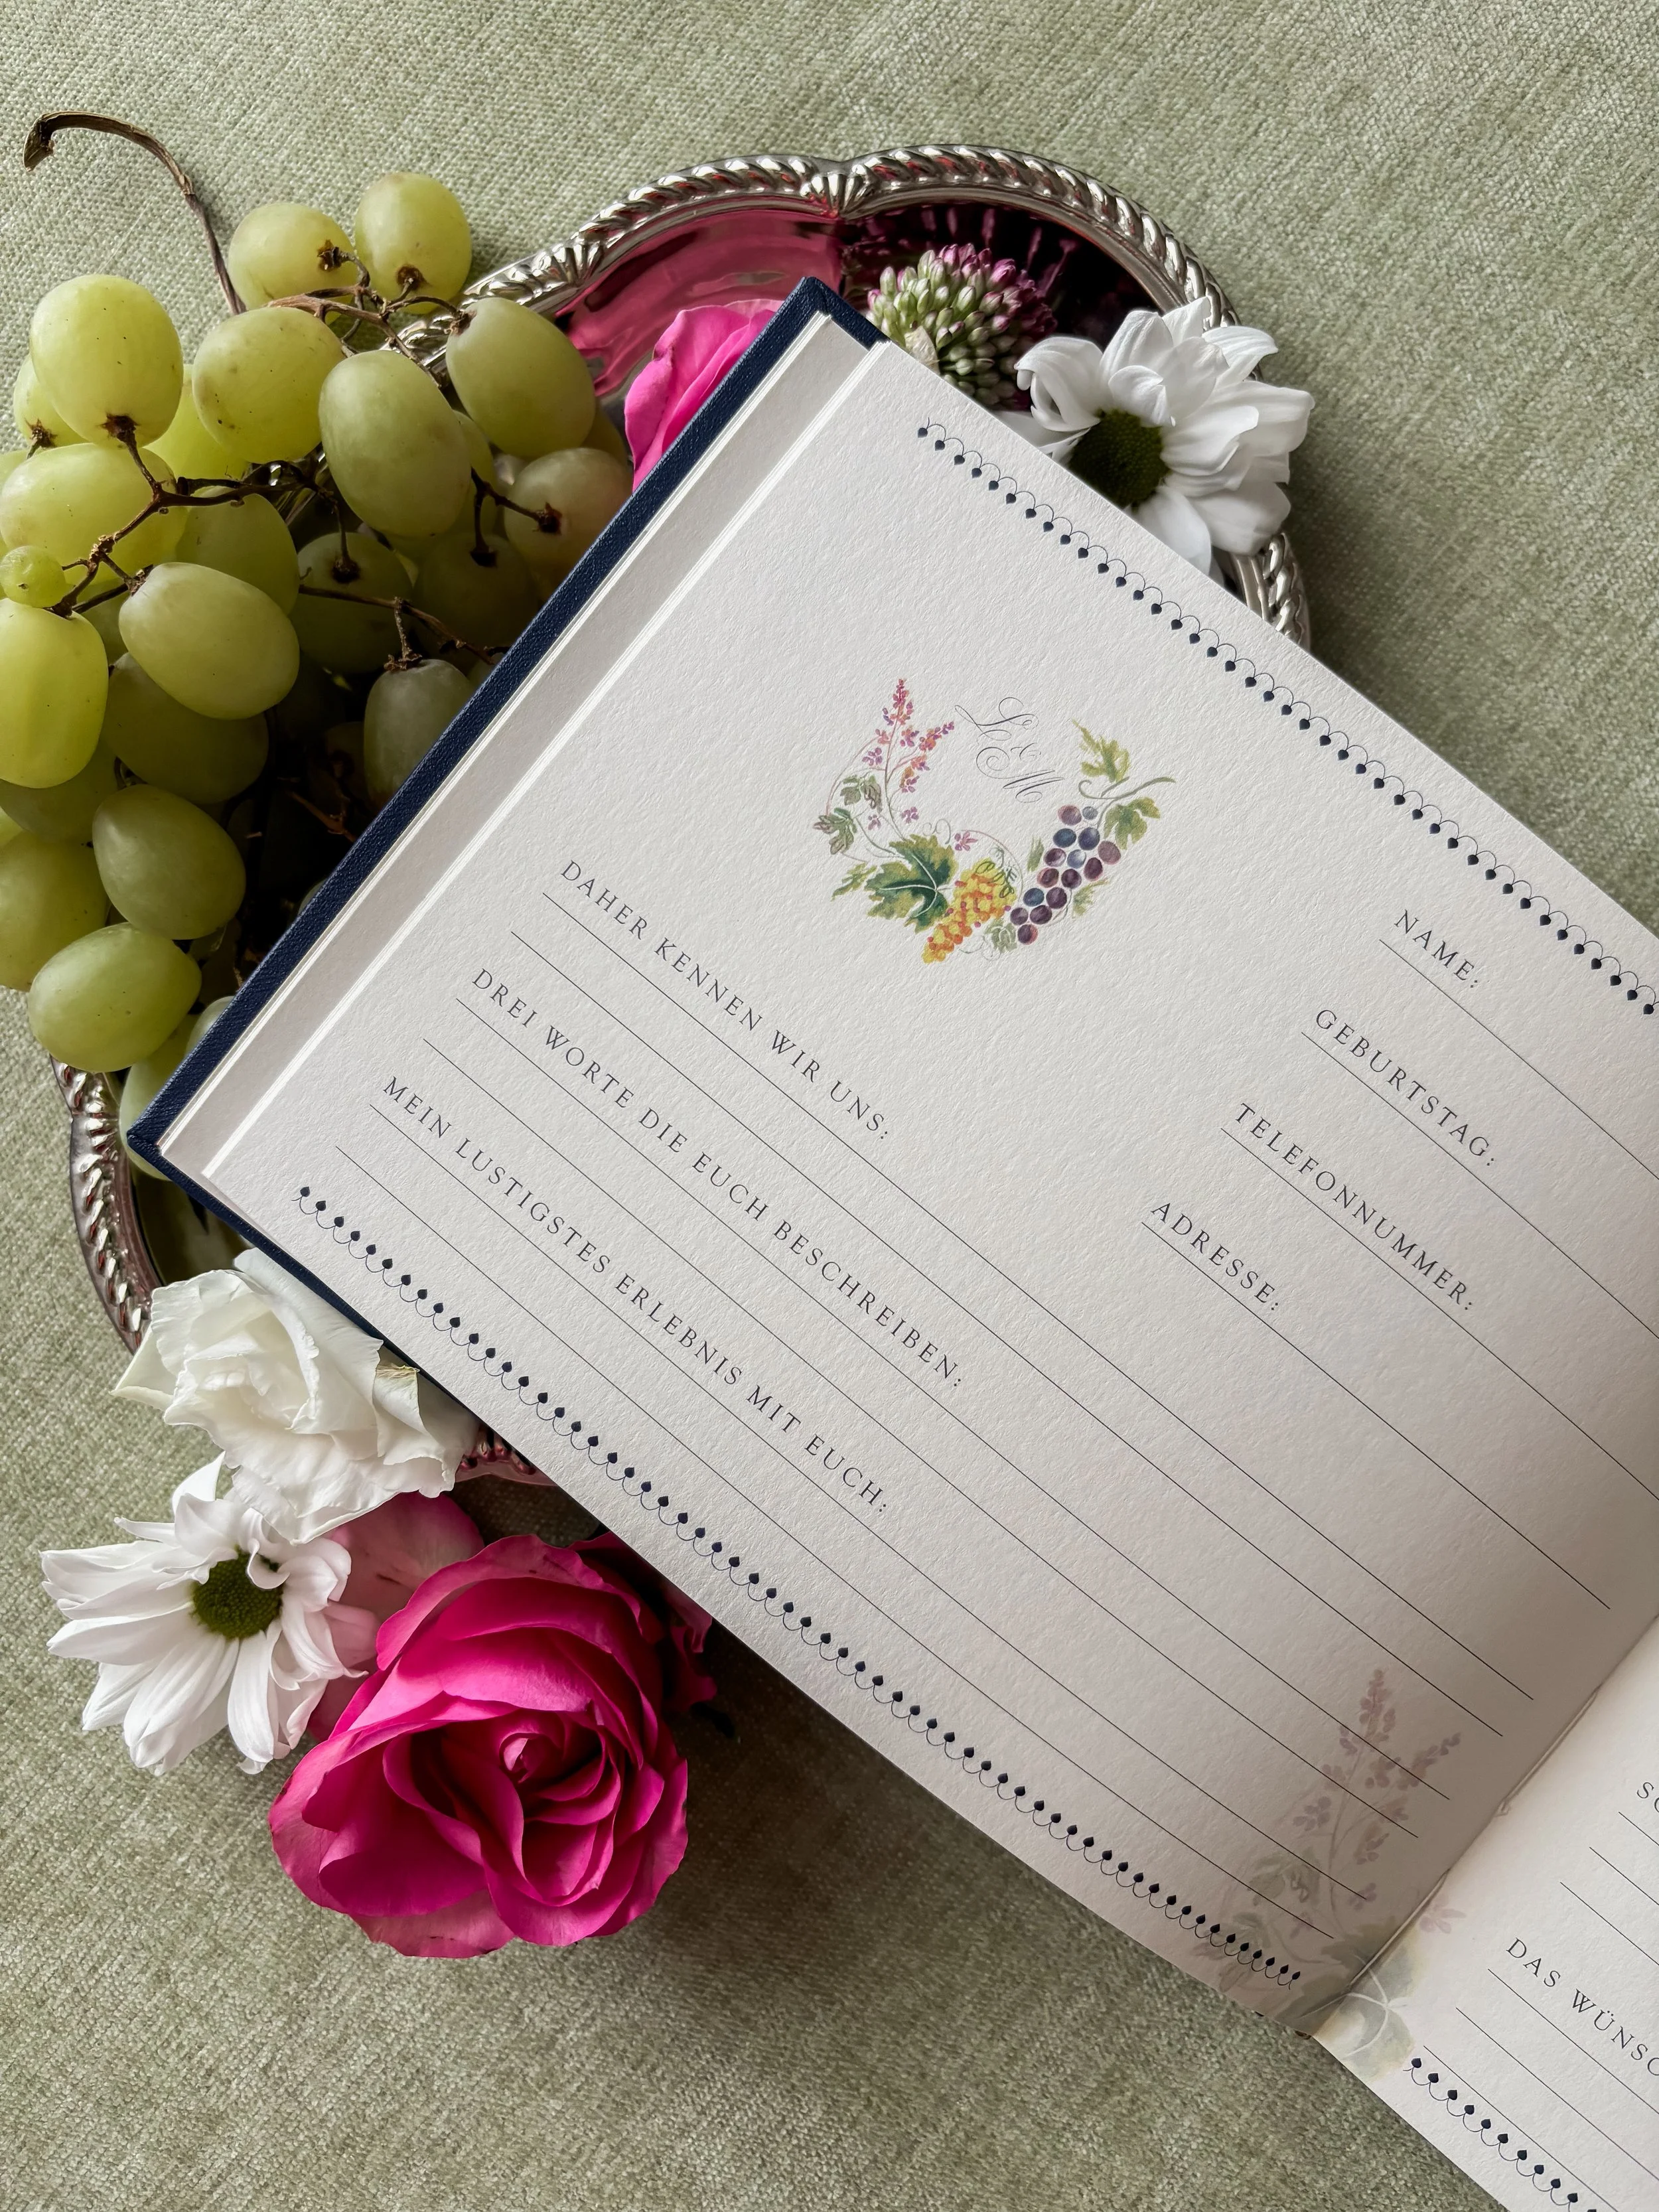 L
&
M
NAME:
GEBURTSTAG:
TELEFONNUMMER:
ADRESSE:
DAHER KENNEN WIR UNS:
DREI WORTE DIE EUCH BESCHREIBEN:
MEIN LUSTIGSTES ERLEBNIS MIT EUCH:
DAS